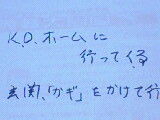 K.D.ホームに
行ってくる
玄関、「かぎ」をかけて行